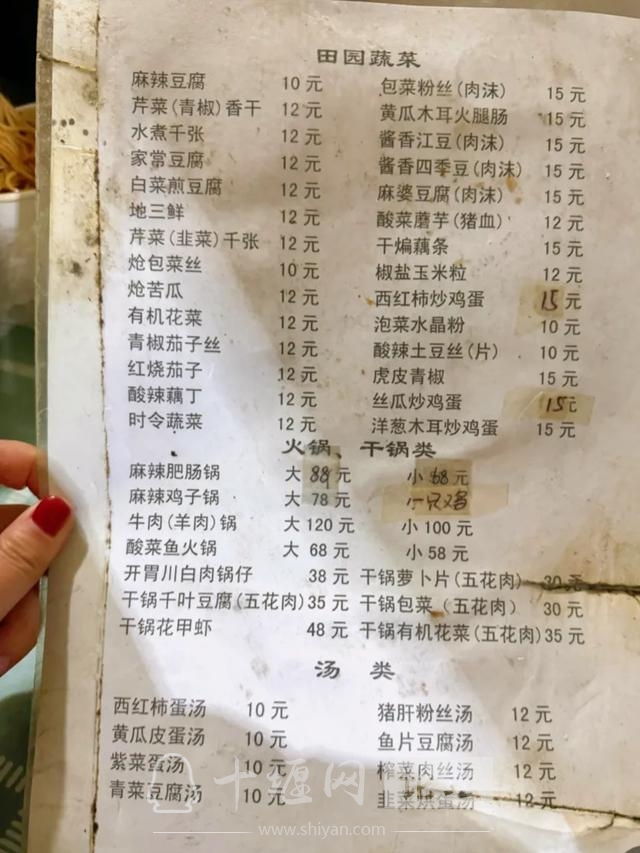 田园蔬菜
麻辣豆腐 10元 包菜粉丝(肉沫) 15元
芹菜(青椒)香干 12元 黄瓜木耳火腿肠 15元
水煮千张 12元 酱香江豆(肉沫) 15元
家常豆腐 12元 酱香四季豆(肉沫) 15元
白菜煎豆腐 12元 麻婆豆腐(肉沫) 15元
地三鲜 12元 酸菜蘑芋(猪血) 12元
芹菜(韭菜)千张 12元 干煸藕条 15元
炝包菜丝 10元 椒盐玉米粒 12元
炝苦瓜 12元 西红柿炒鸡蛋 15元
有机花菜 12元 泡菜水晶粉 10元
青椒茄子丝 12元 酸辣土豆丝(片) 10元
红烧茄子 12元 虎皮青椒 15元
酸辣藕丁 12元 丝瓜炒鸡蛋 15元
时令蔬菜 12元 洋葱木耳炒鸡蛋 15元
火锅、干锅类
麻辣肥肠锅 大 88元 小 68元
麻辣鸡子锅 大 78元 一只鸡
牛肉(羊肉)锅 大 120元 小 100元
酸菜鱼火锅 大 68元 小 58元
开胃川白肉锅仔 38元 干锅萝卜片(五花肉) 30元
干锅千叶豆腐(五花肉) 35元 干锅包菜(五花肉) 30元
干锅花甲虾 48元 干锅有机花菜(五花肉) 35元
汤 类
西红柿蛋汤 10元 猪肝粉丝汤 12元
黄瓜皮蛋汤 10元 鱼片豆腐汤 12元
紫菜蛋汤 10元 榨菜肉丝汤 12元
青菜豆腐汤 10元 韭菜烘蛋汤 12元
十堰网
www.shiyan.com